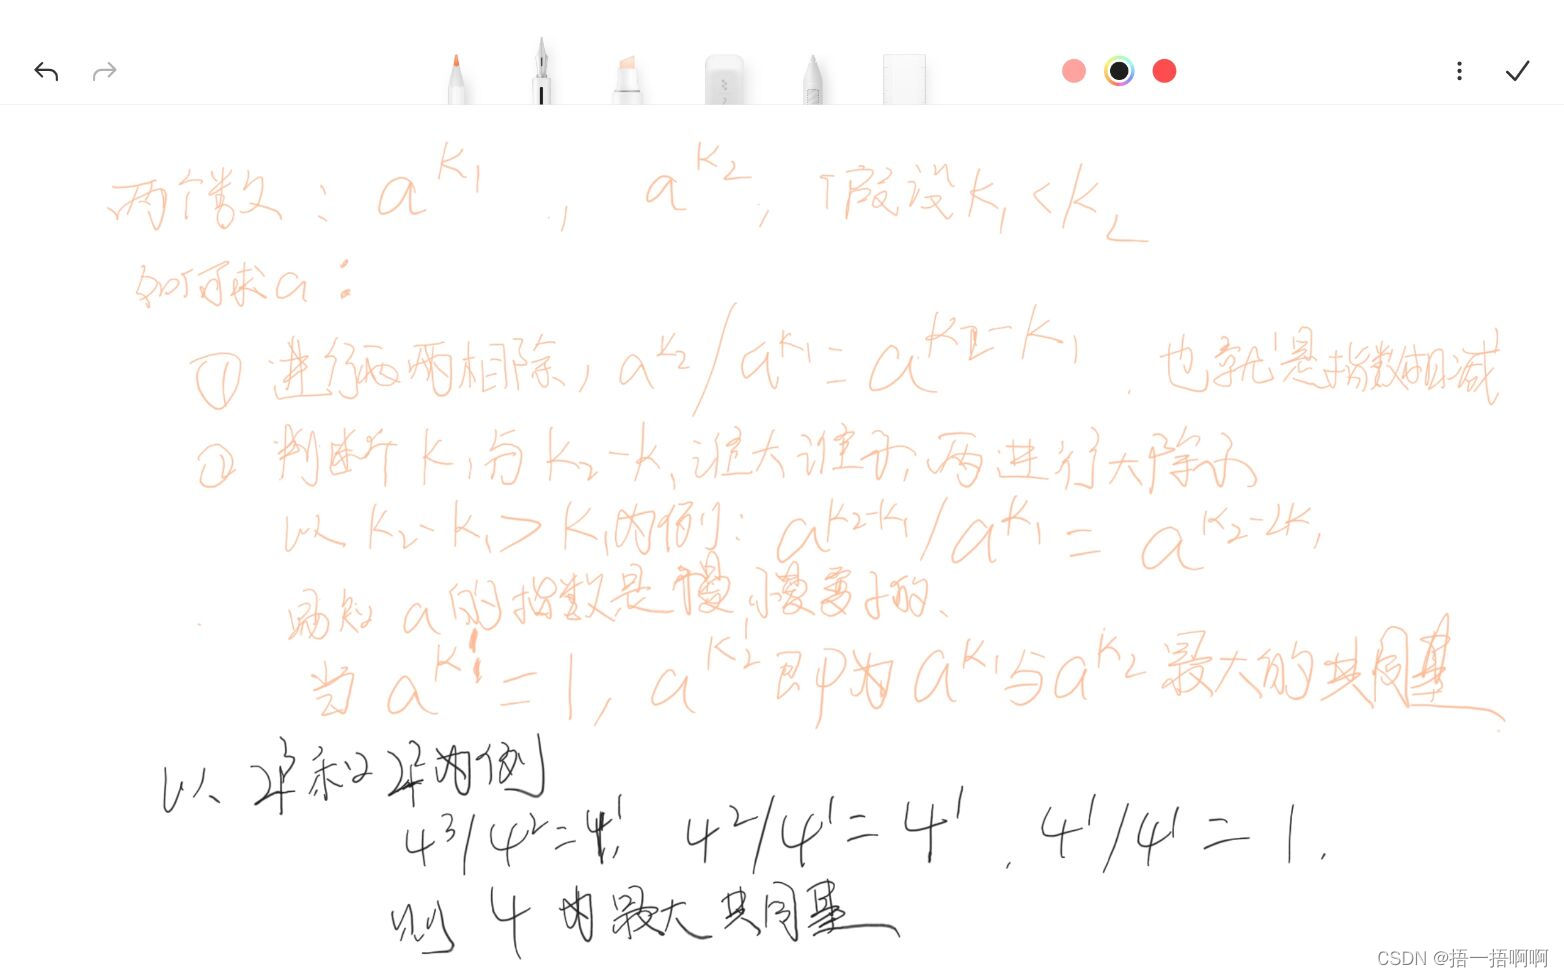 两个数： a^K₁ ， a^K₂， 假设K₁<K₂
如何求a：
① 进行两两相除，a^K₂/a^K₁=a^K₂-K₁ . 也就是指数相减
② 判断K₁与K₂-K₁谁大谁小，再进行大除小
以K₂-K₁>K₁为例：a^K₂-K₁/a^K₁=a^K₂-2K₁
易知a的指数是慢慢变小的、
当a^K₁'=1，a^K₂'即为a^K₁与a^K₂最大的共同基
以4³和4²为例
4³/4²=4¹， 4²/4¹=4¹ ，4¹/4¹=1.
则4为最大共同基
CSDN @捂一捂啊啊